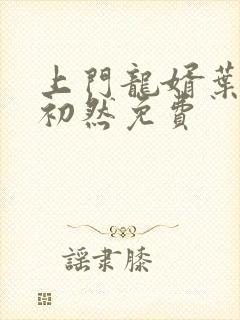 上門龍婿葉
初然免費
謡隶膝